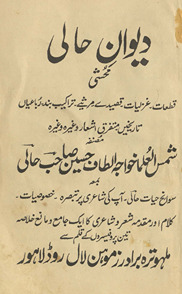 دیوان حالی
محشی
قطعات۔ غزلیات۔ قصیدے۔ مرثیے۔ تراکیب بند۔ رباعیاں
تاریخیں متفرق اشعار وغیرہ وغیرہ
مصنفہ
شمس العلما خواجہ الطاف حسین صاحب حالی
بعد
سوانح حیات حالی۔ آپ کی شاعری پر تبصرہ۔ خصوصیات۔
کلام اور مقدمہ شعر و شاعری کا ایک جامع و مانع خلاصہ
تین پروفیسروں کے قلم سے
ملہوترہ برادرز موہن لال روڈ لاہور